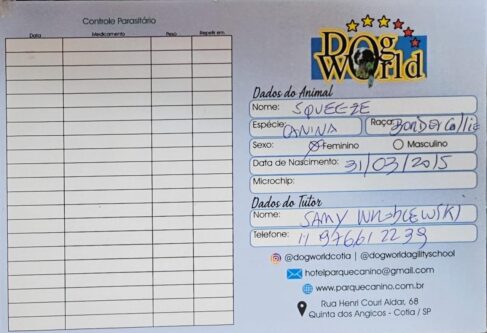 Controle Parasitário
Data Medicamento Peso Repetir em.
Dog
World
Dados do Animal
Nome: SQUEEZE
Espécie: CANINA Raça: Border Collie
Sexo: Feminino Masculino
Data de Nascimento: 31/03/2015
Microchip:
Dados do Tutor
Nome: SAMY WROBLEWSKI
Telefone: 11 97661 2239
@dogworldcotia | @dogworldagilityschool
hotelparquecanino@gmail.com
www.parquecanino.com.br
Rua Henri Couri Aidar, 68
Quinta dos Angicos - Cotia / SP